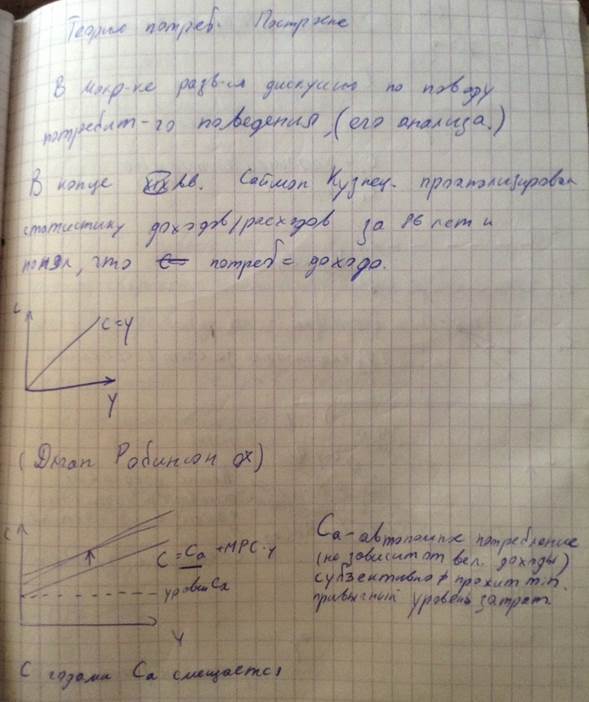 Теория потреб.
В макр-ке разв-ся дискуссию по поводу
потребит-го поведения, (его анализа.)
В конце XIX вв. Саймон Кузнец. проанализировал
статистику доходов/расходов за 86 лет и
понял, что потреб = дохода.
C
C=Y
Y
(Джоан Робинсон)
C
C = Ca + MPC · Y
уровень Ca
Y
Ca - автономное потребление
(не зависит от вел. дохода)
субъективно ≠ прожит min.
привычный уровень затрат
С годами Ca смещается